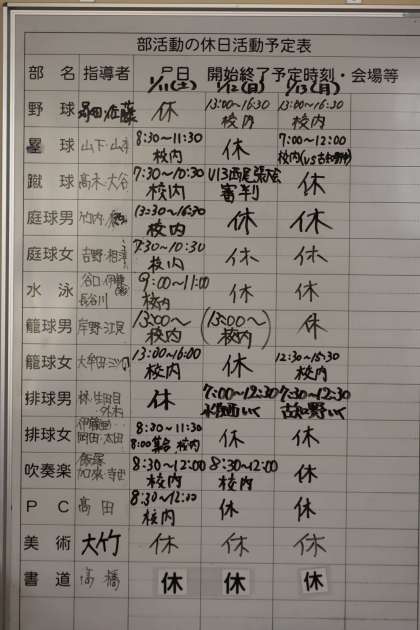 部活動の休日活動予定表
部 名 指導者 月日 開始終了予定時刻・会場等
1/11(土) 1/12(日) 1/13(月)
野 球 休 13:00～16:30 校内 13:00～16:30 校内
塁 球 山下・山本 8:30～11:30 校内 休 7:00～12:00 校内
蹴 球 高木・大谷 7:30～10:30 校内 U13西尾張大会 審判 休
庭球男 竹内 13:30～16:30 校内 休 休
庭球女 吉野・相澤 7:30～10:30 校内 休 休
水 泳 谷口・伊藤 長谷川 9:00～11:00 校内 休 休
籠球男 岸野・江尻 13:00～ 校内 (13:00～ 校内) 休
籠球女 13:00～16:00 校内 休 12:30～15:30 校内
排球男 休 7:00～12:30 7:30～12:30
排球女 伊藤 岡田・太田 8:30～11:30 8:00集合 校内 休 休
吹奏楽 飯塚 加来・寺西 8:30～12:00 校内 8:30～12:00 校内 休
P C 高田 8:30～12:00 校内 休 休
美 術 大竹 休 休 休
書 道 高橋 休 休 休